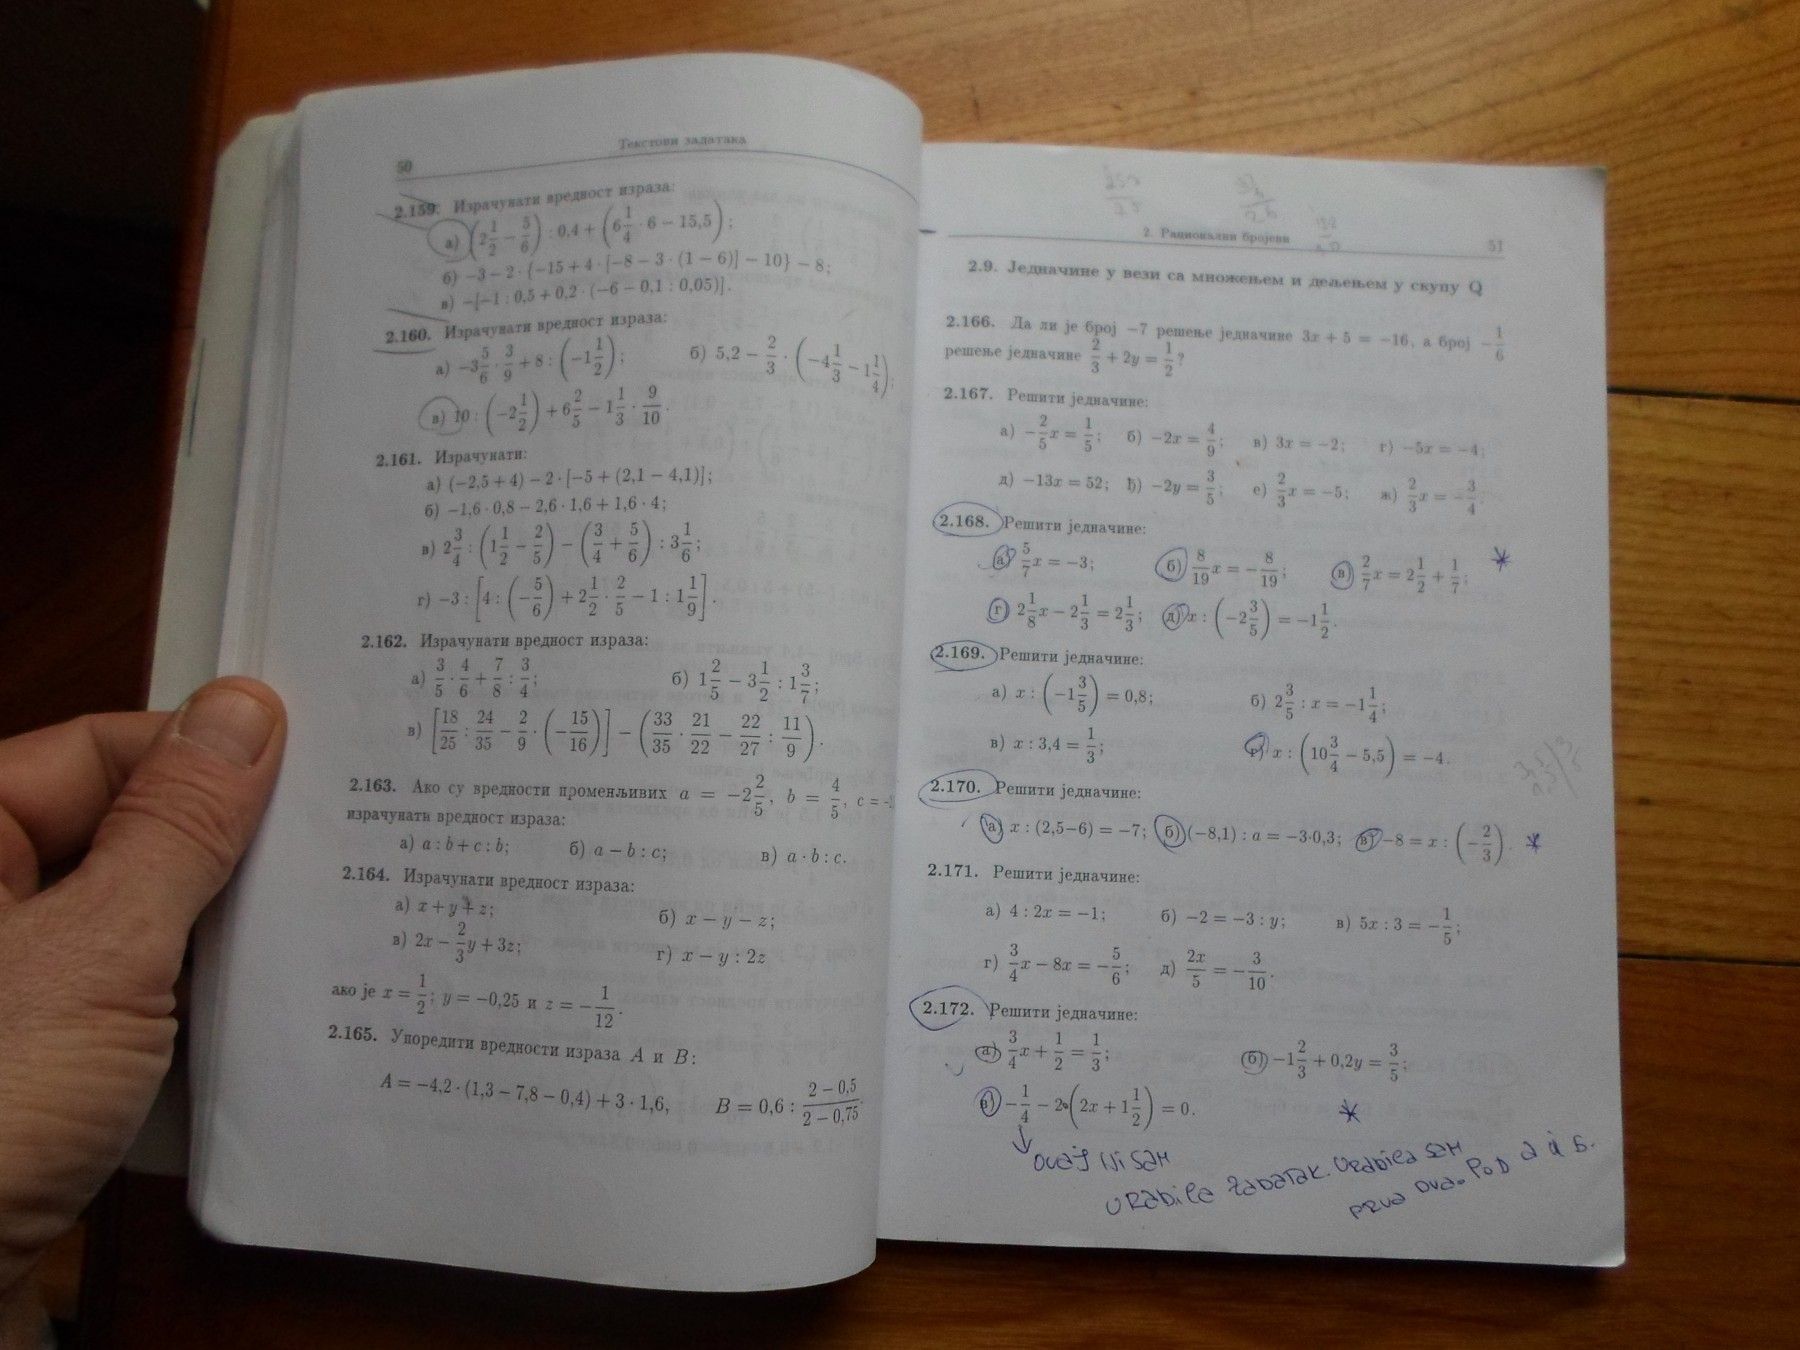 50
Текстови задатака
2.159. Израчунати вредност израза:
а) (2 1/2 − 5/6) : 0,4 + (6 1/4 · 6 − 15,5);
б) −3 − 2 · {−15 + 4 · [−8 − 3 · (1 − 6)] − 10} − 8;
в) −[−1 : 0,5 + 0,2 · (−6 − 0,1 : 0,05)].
2.160. Израчунати вредност израза:
а) −3 5/6 · 3/9 + 8 : (−1 1/2); б) 5,2 − 2/3 · (−4 1/3 − 1 1/4);
в) 10 : (−2 1/2) + 6 2/5 − 1 1/3 · 9/10.
2.161. Израчунати:
а) (−2,5 + 4) − 2 · [−5 + (2,1 − 4,1)];
б) −1,6 · 0,8 − 2,6 · 1,6 + 1,6 · 4;
в) 2 3/4 : (1 1/2 − 2/5) − (3/4 + 5/6) : 3 1/6;
г) −3 : [4 : (−5/6) + 2 1/2 · 2/5 − 1 : 1 1/9].
2.162. Израчунати вредност израза:
а) 3/5 · 4/6 + 7/8 : 3/4; б) 1 2/5 − 3 1/2 : 1 3/7;
в) [18/25 : 24/35 − 2/9 · (−15/16)] − (33/35 · 21/22 − 22/27 : 11/9).
2.163. Ако су вредности променљивих a = −2 2/5, b = 4/5, c = −
израчунати вредност израза:
а) a : b + c : b; б) a − b : c; в) a · b : c.
2.164. Израчунати вредност израза:
а) x + y + z; б) x − y − z;
в) 2x − 2/3 y + 3z; г) x − y : 2z
ако је x = 1/2; y = −0,25 и z = −1/12.
2.165. Упоредити вредности израза A и B:
A = −4,2 · (1,3 − 7,8 − 0,4) + 3 · 1,6, B = 0,6 : (2 − 0,5)/(2 − 0,75).
2. Рационални бројеви
51
2.9. Једначине у вези са множењем и дељењем у скупу Q
2.166. Да ли је број −7 решење једначине 3x + 5 = −16, а број −1/6
решење једначине 2/3 + 2y = 1/2?
2.167. Решити једначине:
а) −2/5 x = 1/5; б) −2x = 4/9; в) 3x = −2; г) −5x = −4;
д) −13x = 52; ђ) −2y = 3/5; е) 2/3 x = −5; ж) 2/3 x = −3/4.
2.168. Решити једначине:
а) 5/7 x = −3; б) 8/19 x = −8/19; в) 2/7 x = 2 1/2 + 1/7; *
г) 2 1/8 x − 2 1/3 = 2 1/3; д) x : (−2 3/5) = −1 1/2.
2.169. Решити једначине:
а) x : (−1 3/5) = 0,8; б) 2 3/5 : x = −1 1/4;
в) x : 3,4 = 1/3; г) x : (10 3/4 − 5,5) = −4.
2.170. Решити једначине:
а) x : (2,5−6) = −7; б) (−8,1) : a = −3·0,3; в) −8 = x : (−2/3). *
2.171. Решити једначине:
а) 4 : 2x = −1; б) −2 = −3 : y; в) 5x : 3 = −1/5;
г) 3/4 x − 8x = −5/6; д) 2x/5 = −3/10.
2.172. Решити једначине:
а) 3/4 x + 1/2 = 1/3; б) −1 2/3 + 0,2y = 3/5;
в) −1/4 − 2·(2x + 1 1/2) = 0. *
↓ ovaj nisam
uradila zadatak. Uradila sam
prva dva. pod a i b.